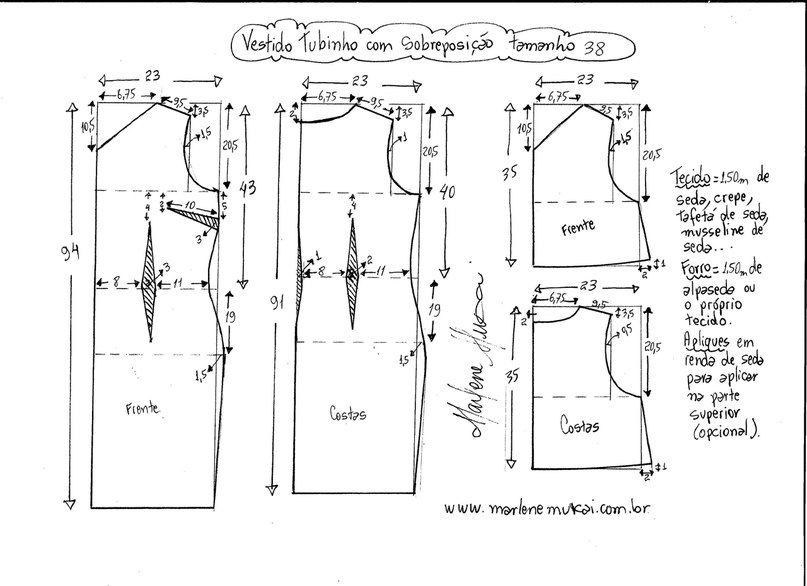 Vestido Tubinho com Sobreposição tamanho 38
23
6,75
9,5
3,5
10,5
1,5
20,5
43
94
4
2
10
5
3
8
3
11
19
1,5
Frente
23
6,75
9,5
3,5
2
1
20,5
40
91
4
1
8
2
11
19
1,5
Costas
23
6,75
9,5
3,5
10,5
1,5
20,5
35
Frente
2
1
23
6,75
9,5
3,5
2
0,5
20,5
35
Costas
2
1
Tecido = 1,50m de
seda, crepe,
tafetá de seda,
musseline de
seda...
Forro = 1,50m de
alpaseda ou
o próprio
tecido.
Apliques em
renda de seda
para aplicar
na parte
superior
(opcional).
Marlene Mukai
www.marlenemukai.com.br